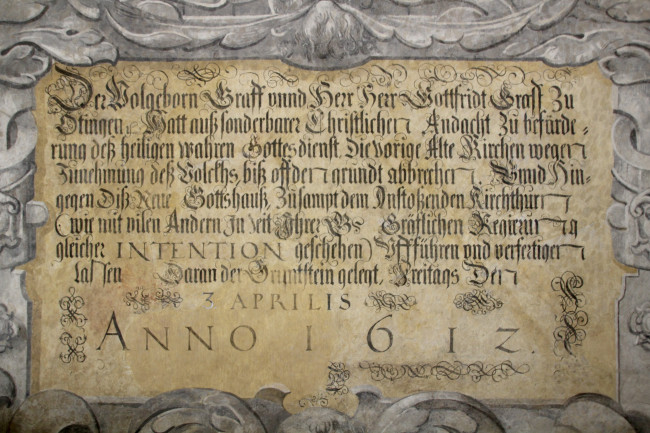 Der Wolgeborn Graff vnnd Herr Herr Gottfridt Graff Zu
Ötingen ꝛc Hatt auß sonderbarer Christlicher Andacht Zu befürde-
rung deß heiligen wahren Gottesdienst Die vorige Alte Kirchen wegen
Zunehmung deß Volckhs, biß off den grundt abbrechen Vnnd Hin-
gegen Diß Neue Gottshauß, Zusampt dem Anstoßenden Kirchthurn
(wie mit vilen Andern In Zeit Ihrer Gräflichen Regierung
gleicher INTENTION geschehen) Vffführen vnd verfertigen
Lassen Daran der Gruntstein gelegt, Freitags Den
3 APRILIS
ANNO 1612.